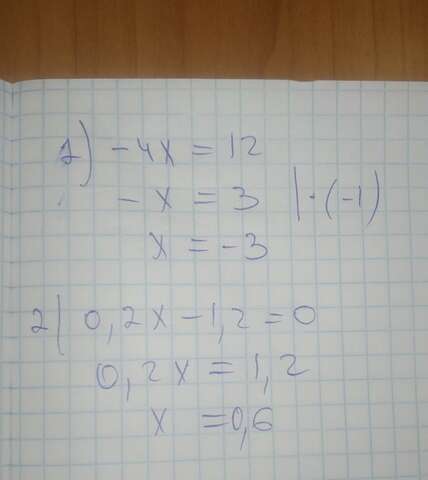 1) -4x = 12
-x = 3 |·(-1)
x = -3
2) 0,2x - 1,2 = 0
0,2x = 1,2
x = 0,6